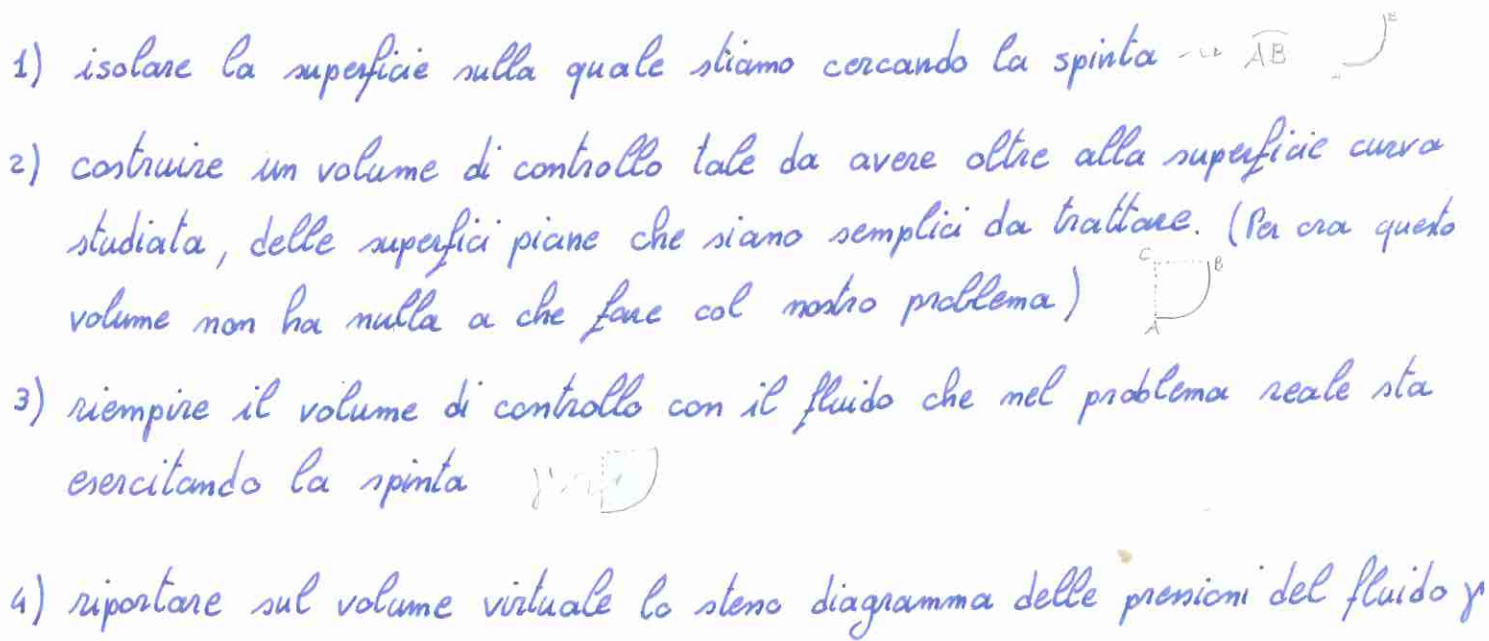 1) isolare la superficie sulla quale stiamo cercando la spinta → AB
2) costruire un volume di controllo tale da avere oltre alla superficie curva
studiata, delle superfici piane che siano semplici da trattare. (Per ora questo
volume non ha nulla a che fare col nostro problema) C B A
3) riempire il volume di controllo con il fluido che nel problema reale sta
esercitando la spinta
4) riportare sul volume virtuale lo stesso diagramma delle pressioni del fluido γ